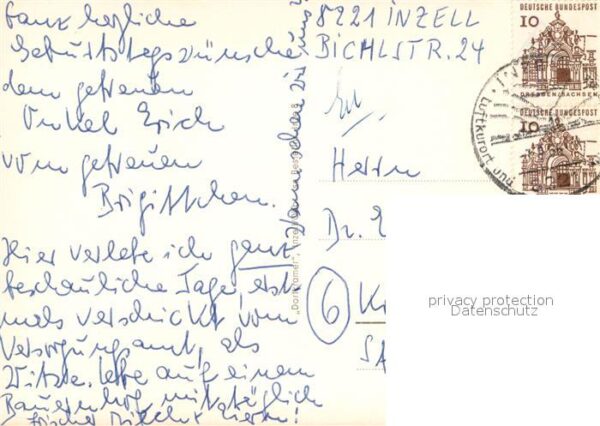 Ganz herzliche
Geburtstagswünsche
dem getreuen
Onkel Erich
vom getreuen
Brigittchen.
Hier verlebe ich ganz
beschauliche Tage, erst-
mals verschickt vom
Versorgungsamt, als
Witwe. Lebe auf einem
Bauernhof mit täglich
frischer Milch
Wann sehen wir uns?
8221 INZELL
BICHLSTR. 24
Herrn
Dr. E
6
DEUTSCHE BUNDESPOST
10
DRESDEN/SACHSEN
DEUTSCHE BUNDESPOST
10
Luftkurort und
privacy protection
Datenschutz